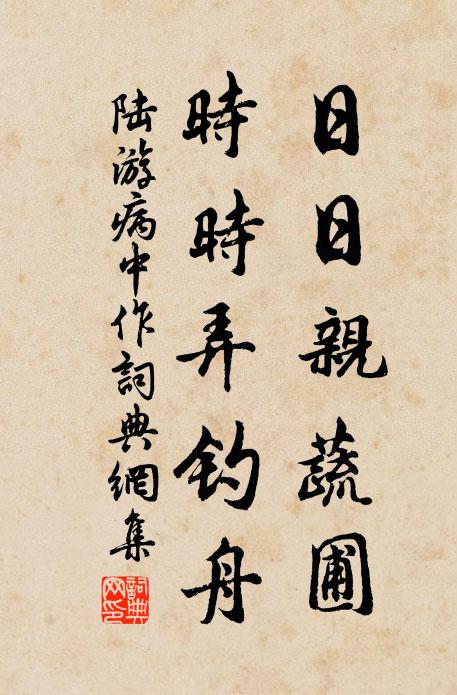 日日親蔬圃
時時弄釣舟
陸游病中作詞典網集
詞典網印